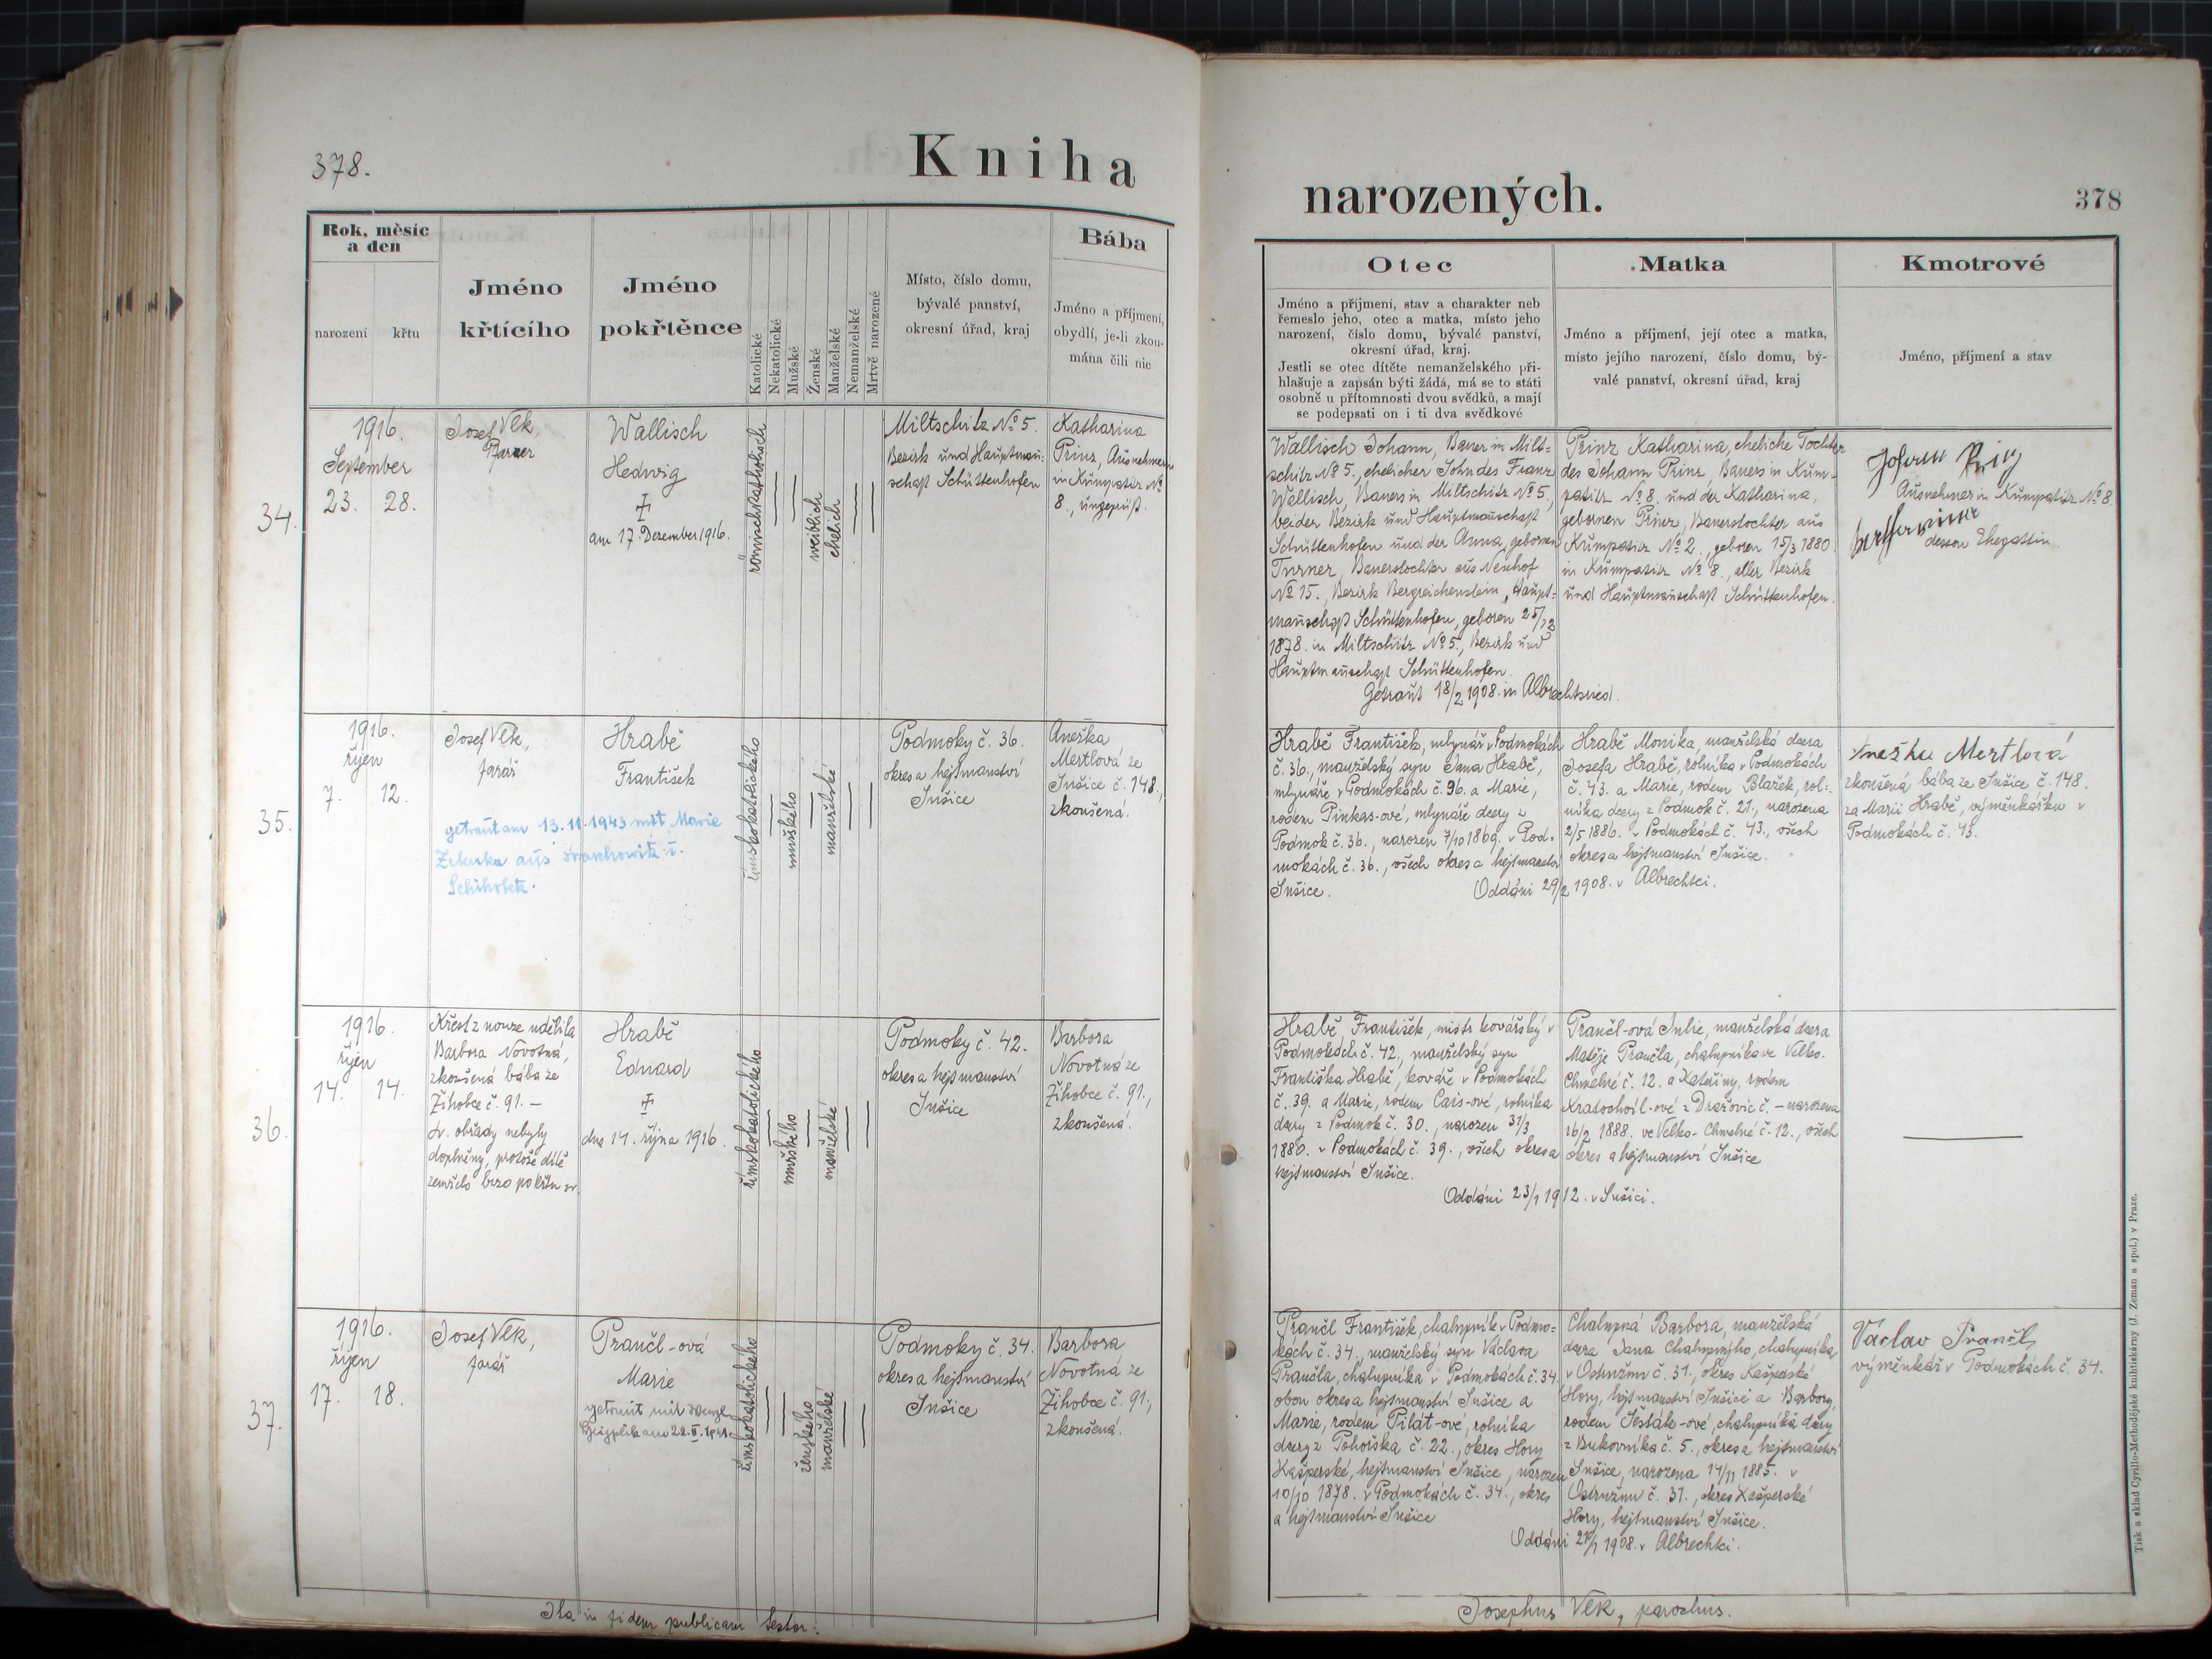 378.
Kniha
Rok, měsíc
a den
narození
křtu
Jméno
křtícího
Jméno
pokřtěnce
Katolické
Nekatolické
Mužské
Ženské
Manželské
Nemanželské
Mrtvě narozené
Místo, číslo domu,
bývalé panství,
okresní úřad, kraj
Bába
Jméno a příjmení,
obydlí, je-li zkou-
mána čili nic
34.
1916.
September
23. 28.
Josef Vlk,
Pfarrer
Wallisch
Hedwig
am 17. Dezember 1916.
römischkatholisch
weiblich
ehelich
Miltschitz No 5.
Bezirk und Hauptman-
schaft Schüttenhofen
Katharina
Prinz, Ausnehmerin
in Kumpatitz No
8., ungeprüft.
35.
1916.
říjen
7. 12.
Josef Vlk,
farář
Hrabě
František
getraut am 13.11.1943 mit Marie
aus
římskokatolického
mužského
manželské
Podmoky č. 36.
okres a hejtmanství
Sušice
Anežka
Mertlová ze
Sušice č. 148.,
zkoušená.
36.
1916.
říjen
14. 14.
Křest z nouze udělila
Barbora Novotná,
zkoušená bába ze
Žihobce č. 91. —
sv. obřady nebyly
doplněny, protože dítě
zemřelo brzo po křtu sv.
Hrabě
Eduard
dne 14. října 1916.
římskokatolického
mužského
manželské
Podmoky č. 42.
okres a hejtmanství
Sušice
Barbora
Novotná ze
Žihobce č. 91.,
zkoušená.
37.
1916.
říjen
17. 18.
Josef Vlk,
farář
Prančl-ová
Marie
getraut mit
am 22. II.
římskokatolického
ženského
manželské
Podmoky č. 34.
okres a hejtmanství
Sušice
Barbora
Novotná ze
Žihobce č. 91.,
zkoušená.
Ita in fidem publicam testor:
narozených.
378
Otec
Jméno a příjmení, stav a charakter neb
řemeslo jeho, otec a matka, místo jeho
narození, číslo domu, bývalé panství,
okresní úřad, kraj.
Jestli se otec dítěte nemanželského při-
hlašuje a zapsán býti žádá, má se to státi
osobně u přítomnosti dvou svědků, a mají
se podepsati on i ti dva svědkové
Matka
Jméno a příjmení, její otec a matka,
místo jejího narození, číslo domu, bý-
valé panství, okresní úřad, kraj
Kmotrové
Jméno, příjmení a stav
Wallisch Johann, Bauer in Milt-
schitz No 5., ehelicher Sohn des Franz
Wallisch, Bauers in Miltschitz No 5,
beider Bezirk und Hauptmanschaft
Schüttenhofen und der Anna, gebornen
Turner, Bauerstochter aus Neuhof
No 15., Bezirk Bergreichenstein, Haupt-
manschaft Schüttenhofen, geboren 25/12
1878. in Miltschitz No 5., Bezirk und
Hauptmanschaft Schüttenhofen.
Getraut 18/2 1908. in Albrechtsried.
Prinz Katharina, eheliche Tochter
des Johann Prinz, Bauers in Kum-
patitz No 8. und der Katharina,
gebornen Prinz, Bauerstochter aus
Kumpatitz No 2., geboren 15/3 1880
in Kumpatitz No 8., aller Bezirk
und Hauptmanschaft Schüttenhofen.
Johann Prinz
Ausnehmer in Kumpatitz No 8.
dessen Ehegattin
Hrabě František, mlynář v Podmokách
č. 36., manželský syn Jana Hrabě,
mlynáře v Podmokách č. 36. a Marie,
rodem Pinkas-ové, mlynáře dcery z
Podmok č. 36., narozen 7/10 1869. v Pod-
mokách č. 36., všech okres a hejtmanství
Sušice.
Oddáni 29/2 1908. v Albrechtci.
Hrabě Monika, manželská dcera
Josefa Hrabě, rolníka v Podmokách
č. 43. a Marie, rodem Blažek, rol-
níka dcery z Podmok č. 21., narozena
2/5 1886. v Podmokách č. 43., všech
okres a hejtmanství Sušice.
Anežka Mertlová
zkoušená bába ze Sušice č. 148.
za Marii Hrabě, výměnkářku v
Podmokách č. 43.
Hrabě František, mistr kovářský v
Podmokách č. 42., manželský syn
Františka Hrabě, kováře v Podmokách
č. 39. a Marie, rodem Cais-ové, rolníka
dcery z Podmok č. 30., narozen 31/3
1880. v Podmokách č. 39., všech okres a
hejtmanství Sušice.
Oddáni 23/1 1912. v Sušici.
Prančl-ová Julie, manželská dcera
Matěje Prančla, chalupníka ve Velko-
Chmelné č. 12. a Kateřiny, rodem
Kratochvíl-ové z Dražovic č. — narozena
16/2 1888. ve Velko-Chmelné č. 12., všech
okres a hejtmanství Sušice
Prančl František, chalupník v Podmo-
kách č. 34., manželský syn Václava
Prančla, chalupníka v Podmokách č. 34.
obou okres a hejtmanství Sušice a
Marie, rodem Pilát-ové, rolníka
dcery z Pohorska č. 22., okres Hory
Kašperské, hejtmanství Sušice, narozen
10/10 1878. v Podmokách č. 34., okres
a hejtmanství Sušice
Oddáni 21/1 1908. v Albrechtci.
Chalupná Barbora, manželská
dcera Jana Chalupného, chalupníka
v Ostružnu č. 31., okres Kašperské
Hory, hejtmanství Sušice a Barbory,
rodem Šesták-ové, chalupníka dcery
z Bukovníka č. 5., okres a hejtmanství
Sušice, narozena 14/11 1885. v
Ostružnu č. 31., okres Kašperské
Hory, hejtmanství Sušice.
Vaclav Prančl
výměnkář v Podmokách č. 34.
Josephus Vlk, parochus.
Tisk a sklad Cyrillo-Methodějské knihtiskárny (J. Zeman a spol.) v Praze.